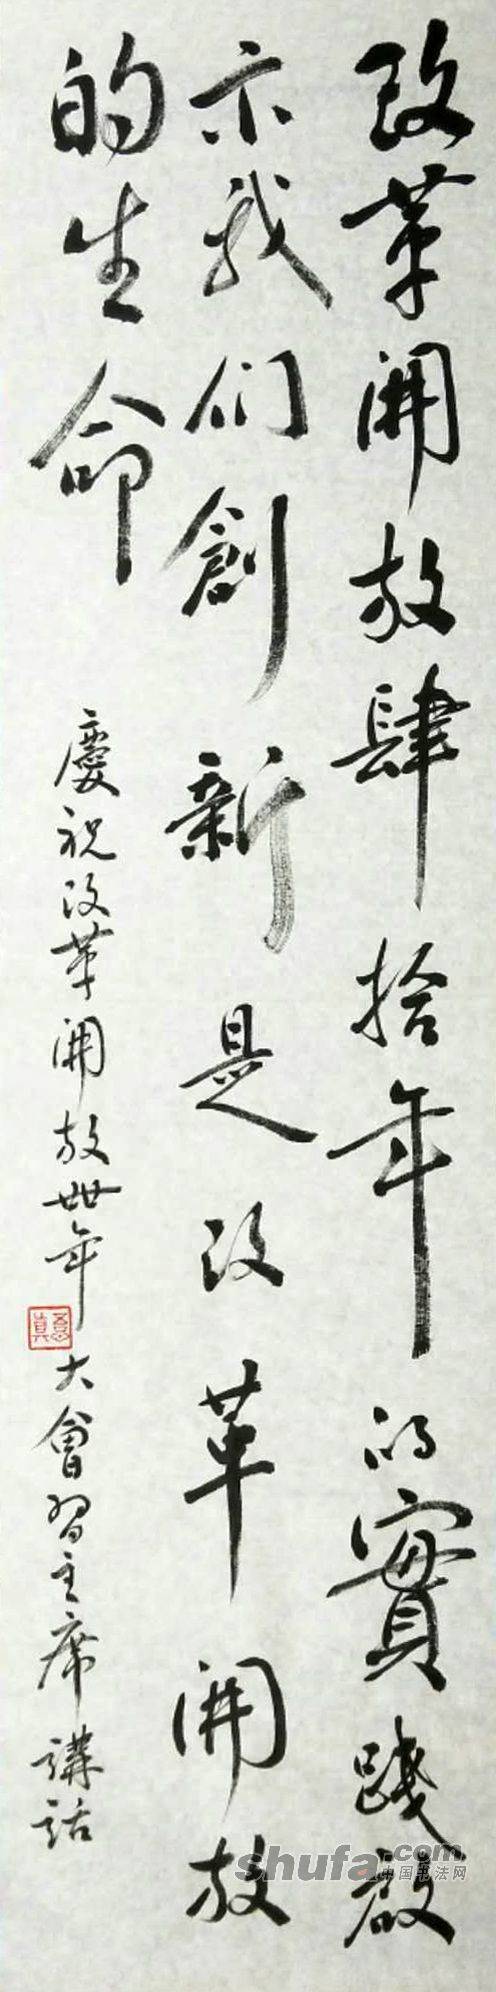 改革開放肆拾年的實踐啟
示我们創新是改革開放
的生命
慶祝改革開放卌年大會習主席講話
shufa.com
中国书法网